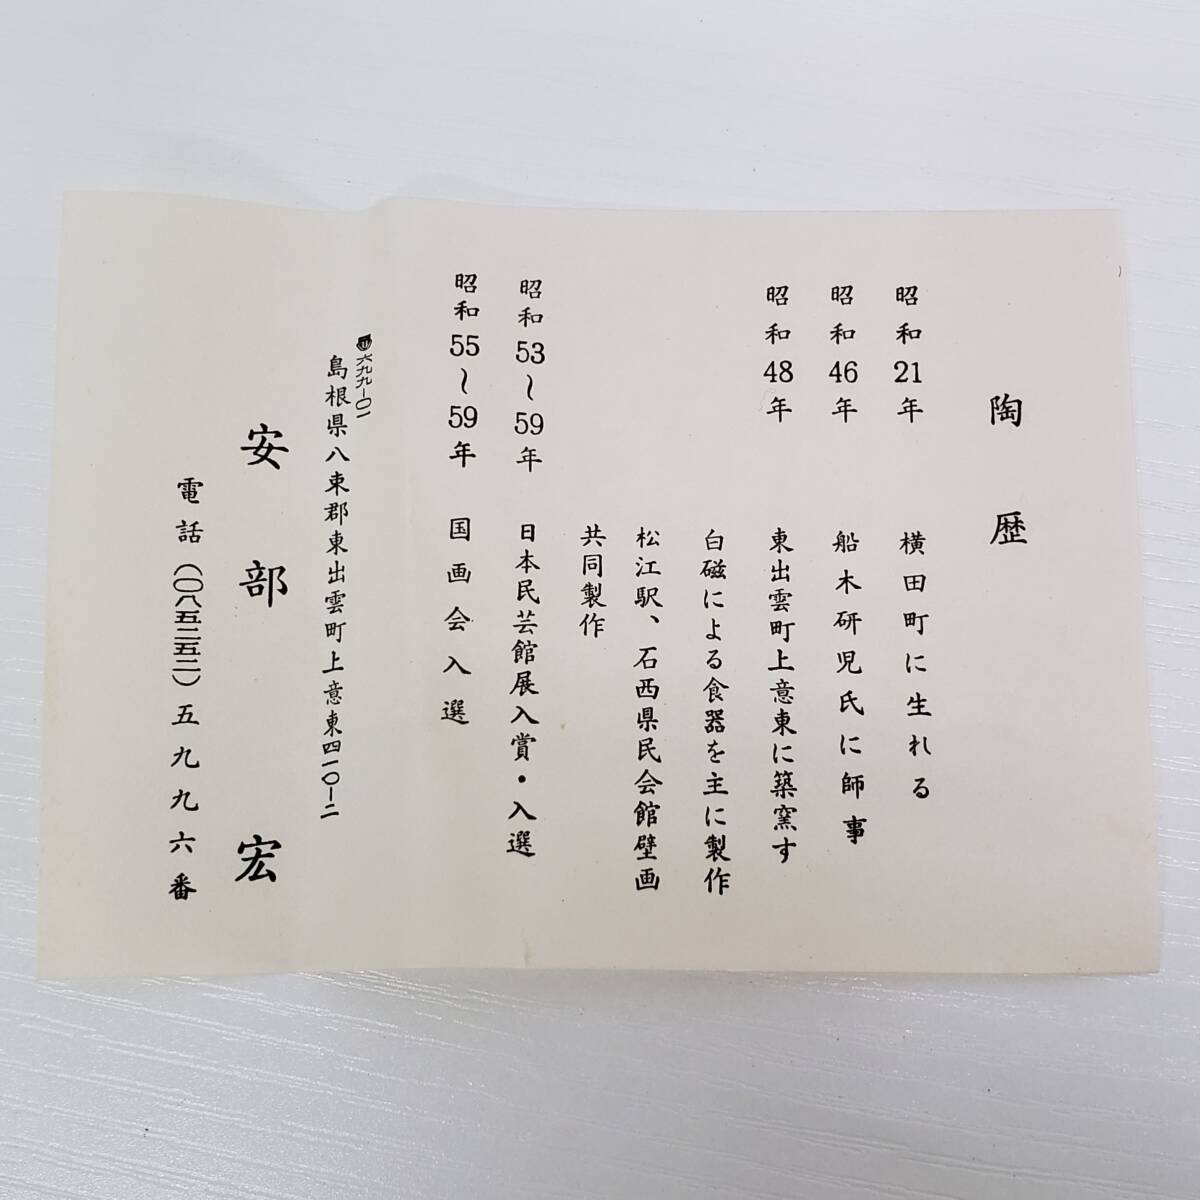 陶歴
昭和21年 横田町に生れる
昭和46年 船木研児氏に師事
昭和48年 東出雲町上意東に築窯す
白磁による食器を主に製作
松江駅、石西県民会館壁画
共同製作
昭和53〜59年 日本民芸館展入賞・入選
昭和55〜59年 国画会入選
〒六九九-〇一
島根県八束郡東出雲町上意東四一〇-二
安部宏
電話(〇八五二五二)五九九六番